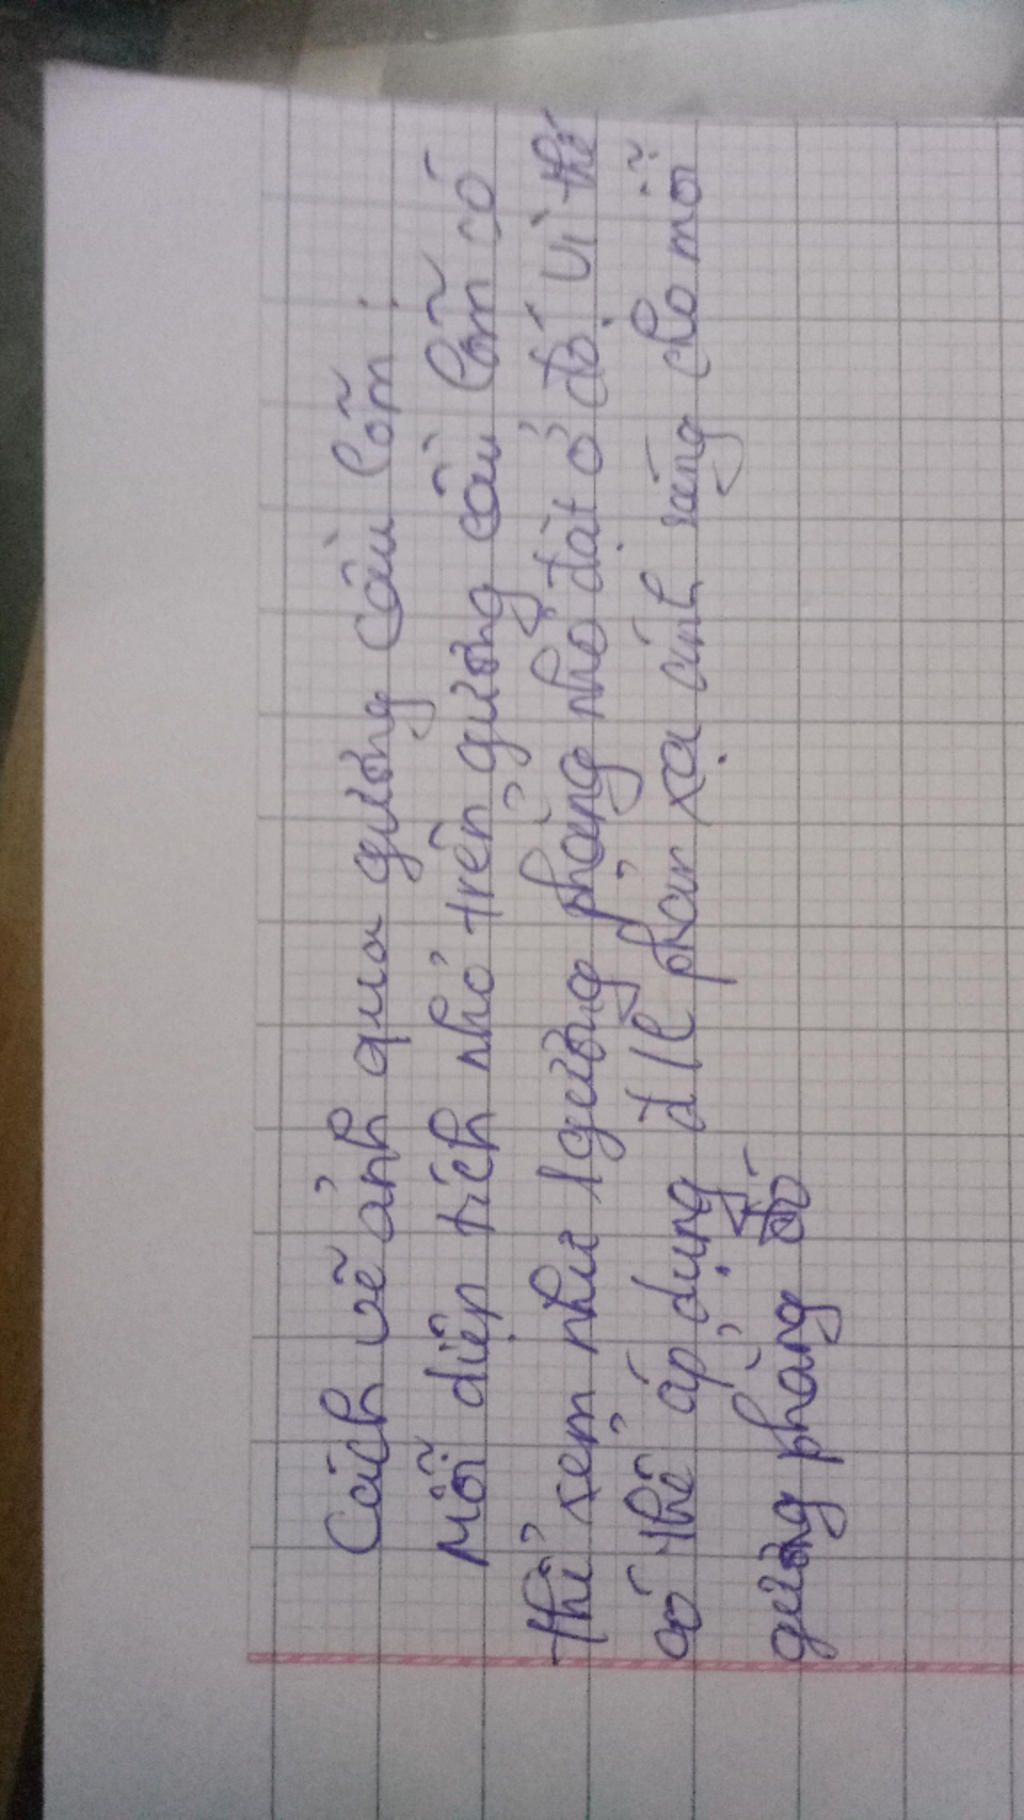 Cách vẽ ảnh qua gương cầu lõm :
Mỗi diện tích nhỏ trên gương cầu lõm có
thể xem như 1 gương phẳng nhỏ đặt ở đó. Vì thế
có thể áp dụng đ/l phản xạ ánh sáng cho mỗi
gương phẳng đó